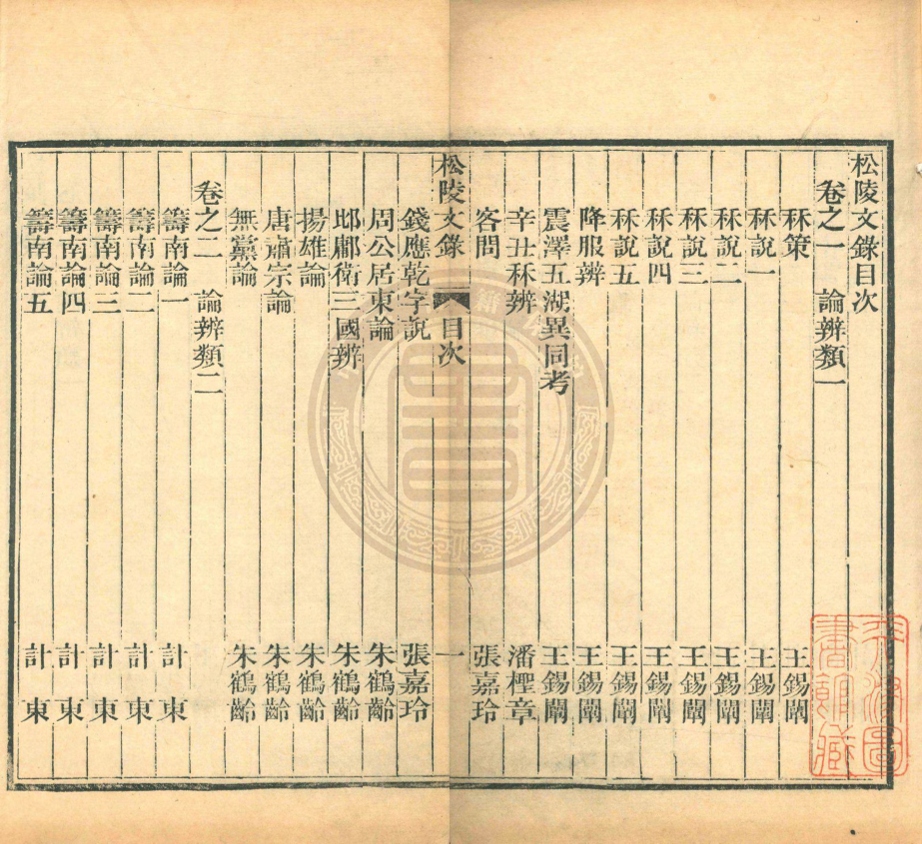 松陵文錄目次
卷之一 論辨類一
秝策 王錫闡
秝說一 王錫闡
秝說二 王錫闡
秝說三 王錫闡
秝說四 王錫闡
秝說五 王錫闡
降服辨 王錫闡
震澤五湖異同考 王錫闡
辛丑秝辨 潘檉章
客問 張嘉玲
松陵文錄 目次 一
錢應乾字說 張嘉玲
周公居東論 朱鶴齡
邶鄘衛三國辨 朱鶴齡
揚雄論 朱鶴齡
唐肅宗論 朱鶴齡
無黨論 朱鶴齡
卷之二 論辨類二
籌南論一 計東
籌南論二 計東
籌南論三 計東
籌南論四 計東
籌南論五 計東
圖
書館藏